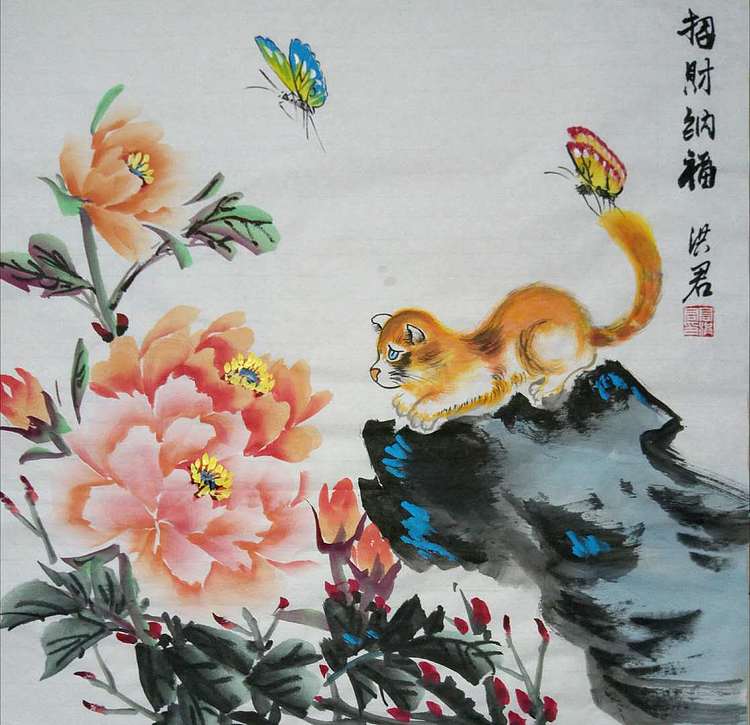 招財納福
洪君